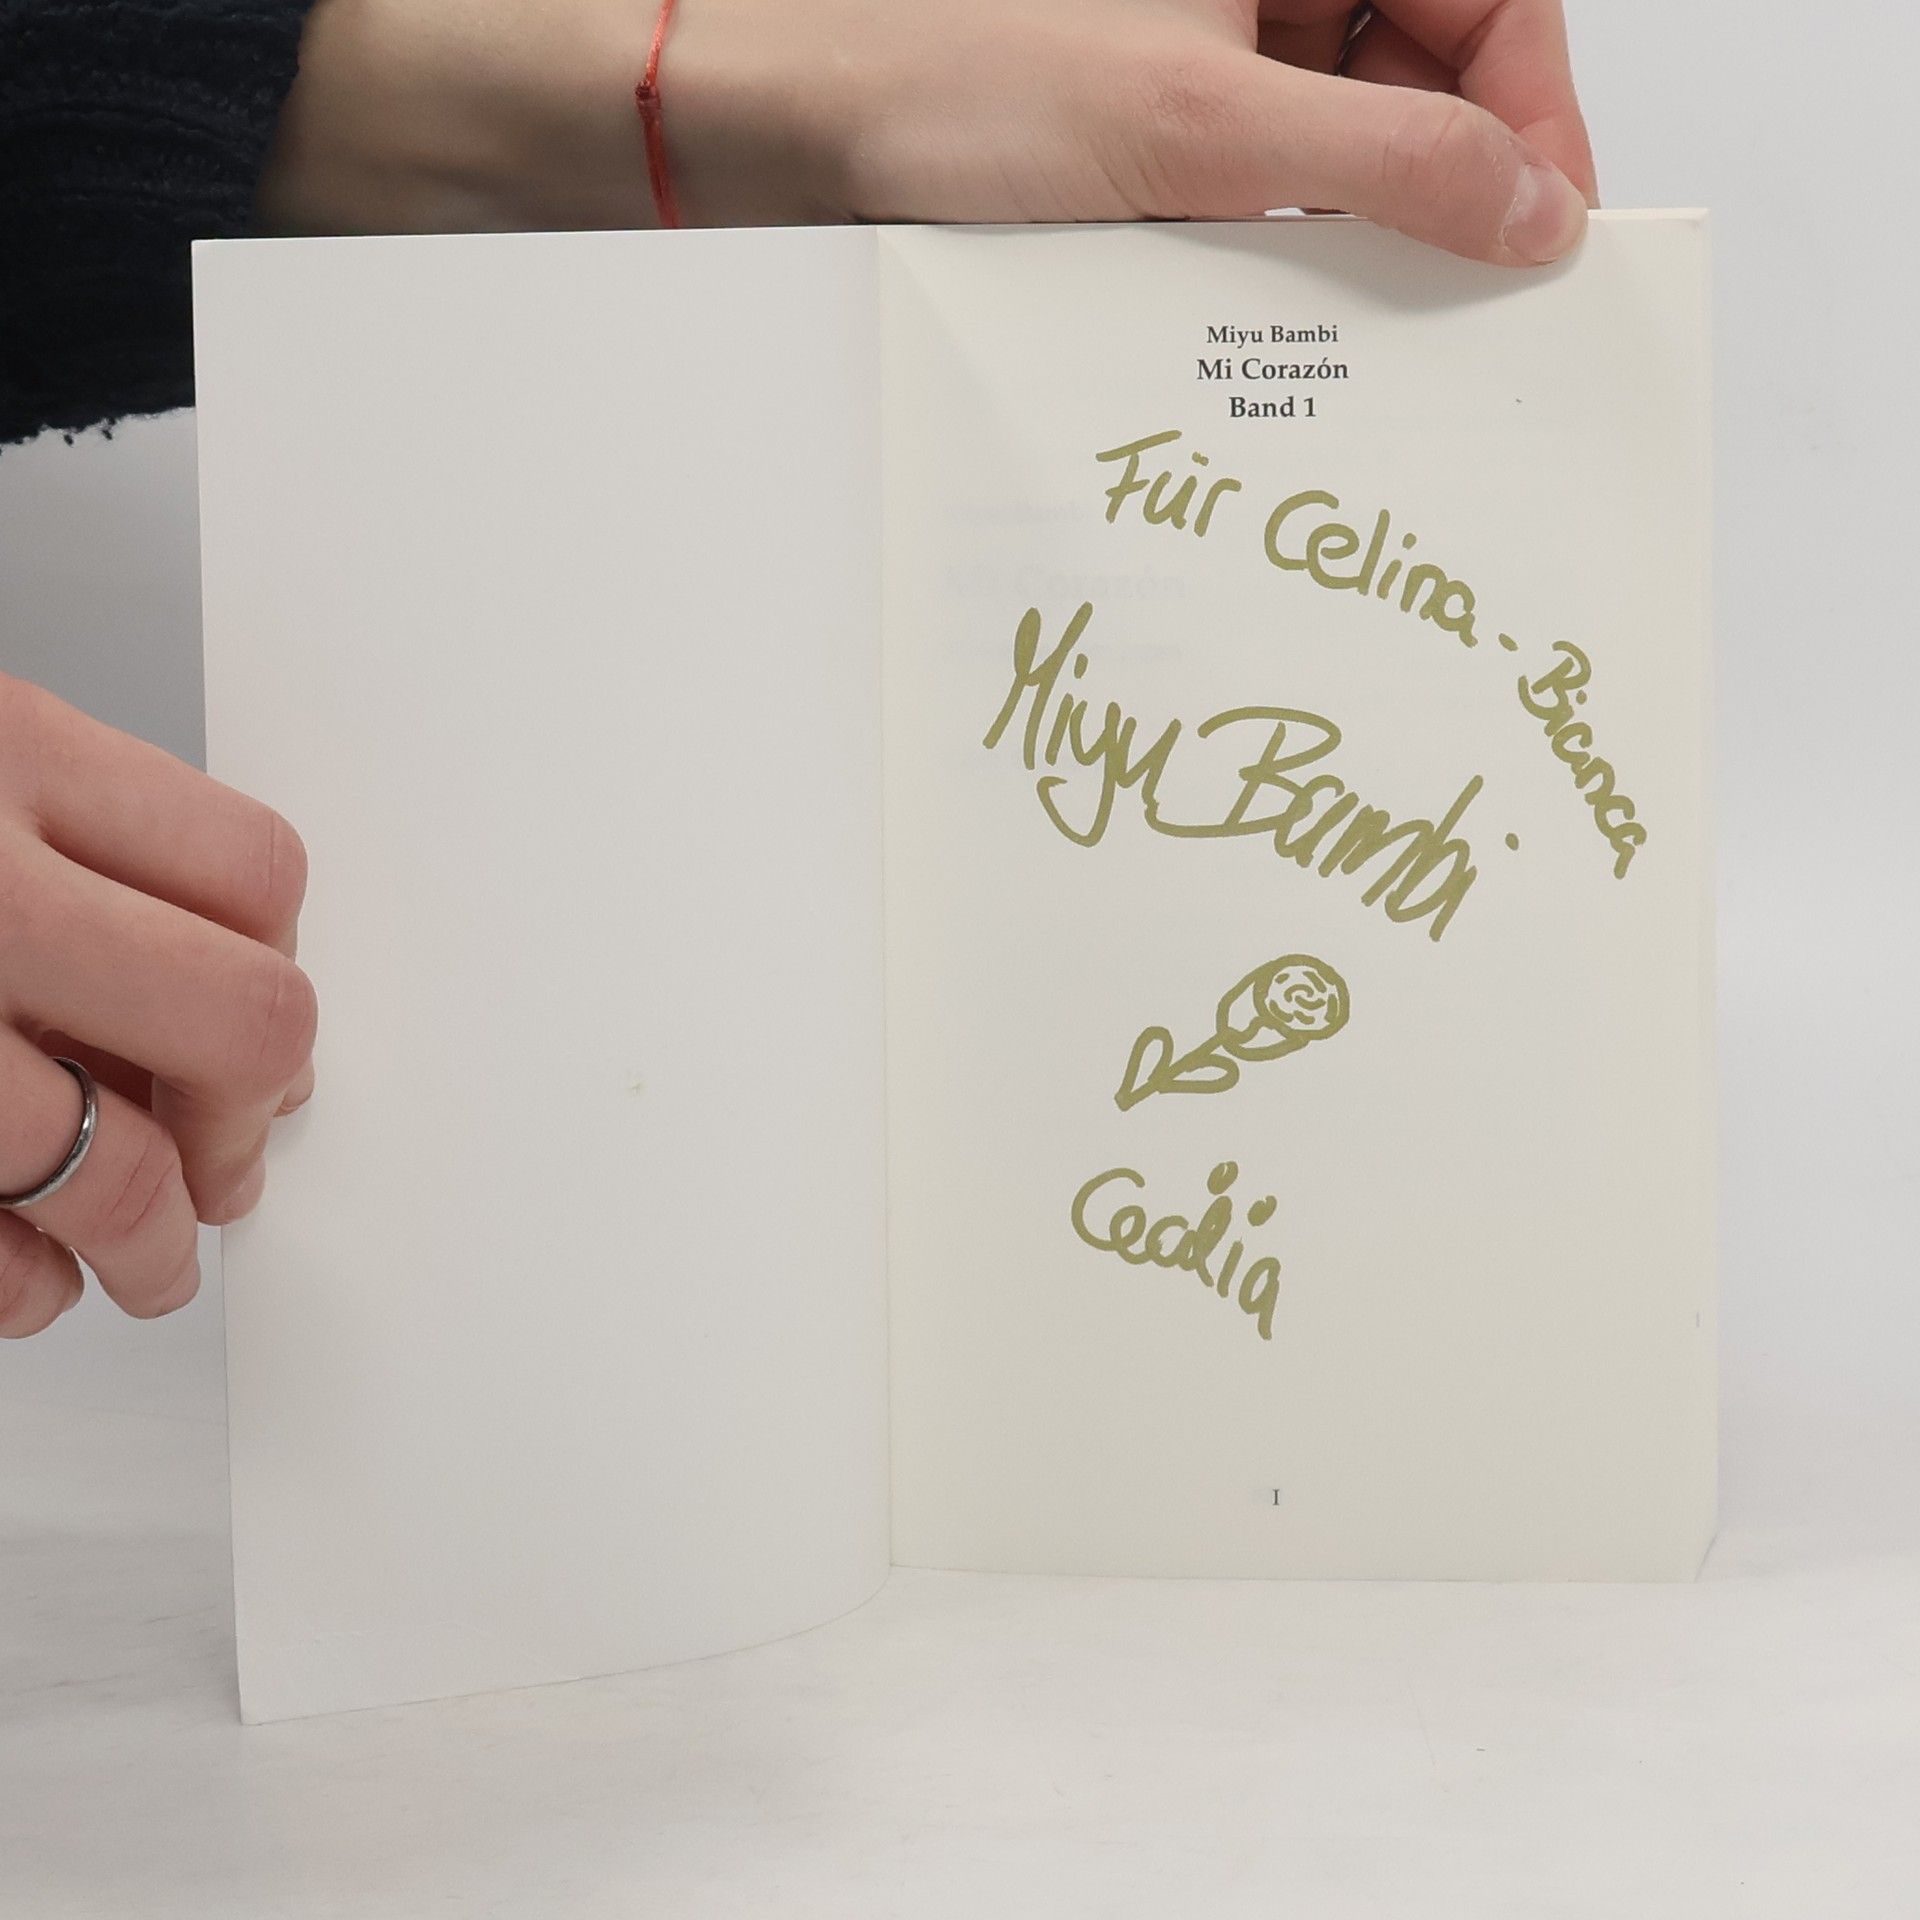 Miyu Bambi
Mi Corazón
Band 1
Für Celina-Bianca
Miyu Bambi
Cecilia
I